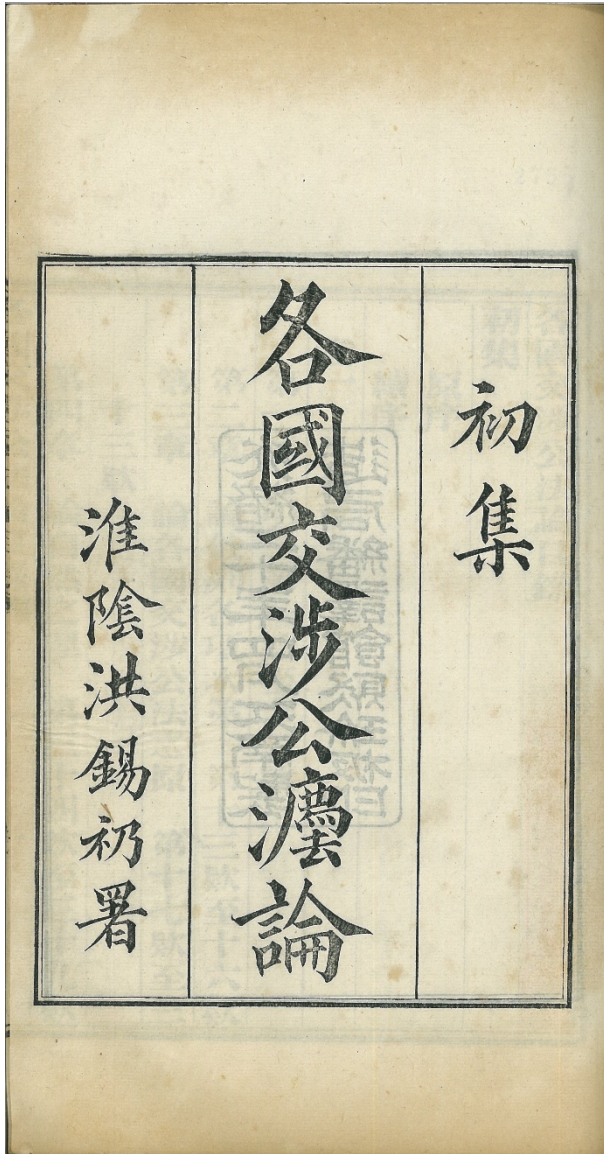 初集
各國交涉公灋論
淮陰洪錫礽署